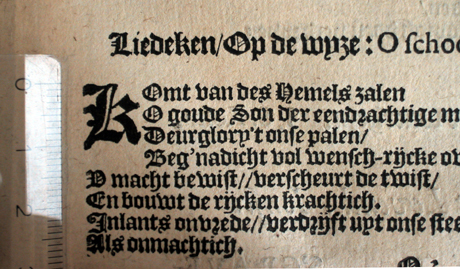 Liedeken/Op de wyze: O schoo
KOmt van des Hemels zalen
O goude Son der eendrachtige m
Deurglory't onse palen/
Beg'nadicht vol wensch-rijcke ov
V macht bewist//verscheurt de twist/
En bouwt de rijcken krachtich.
Inlants onvrede//verdrijft uyt onse stee
Als onmachtich.
0
1
2